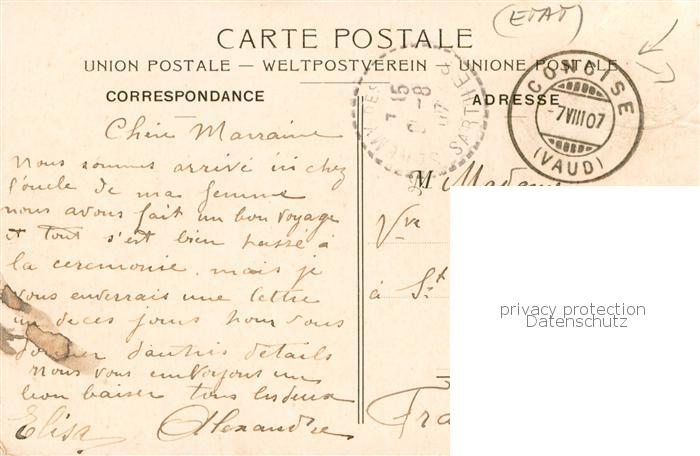 (ETAT)
CARTE POSTALE
UNION POSTALE — WELTPOSTVEREIN — UNIONE POSTALE
CORRESPONDANCE
ADRESSE
CONCISE
-7 VIII 07
(VAUD)
SARTHE
Chère Marraine
Nous sommes arrivé ici chez
l'oncle de ma femme
nous avons fait un bon voyage
et tout s'est bien passé à
la ceremonie. mais je
vous enverrais une lettre
un de ces jours pour vous
donner d'autres détails
Nous vous envoyons un
bon baiser tous les deux
Elisa Alexandre
M Madame
Vve
à St
Fra
privacy protection
Datenschutz